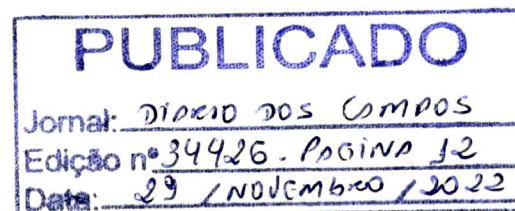 PUBLICADO
Jornal: DIÁRIO DOS CAMPOS
Edição nº 34426. PÁGINA 12
Data: 29 / NOVEMBRO / 2022